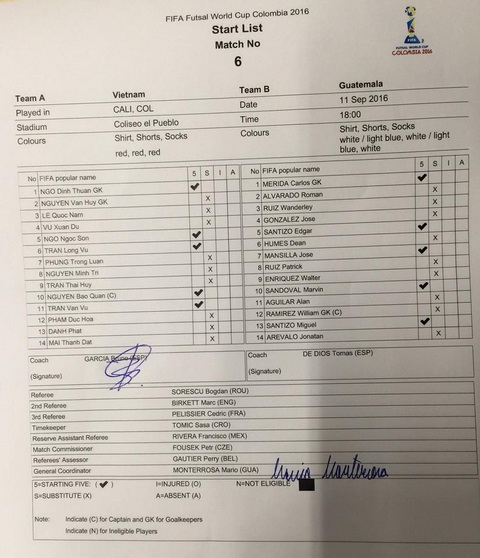 FIFA Futsal World Cup Colombia 2016
Start List
Match No
6
FUTSAL WORLD CUP
COLOMBIA 2016
Team A Vietnam Team B Guatemala
Played in CALI, COL Date 11 Sep 2016
Stadium Coliseo el Pueblo Time 18:00
Colours Shirt, Shorts, Socks Colours Shirt, Shorts, Socks
red, red, red white / light blue, white / light
blue, white
No FIFA popular name 5 S I A
1 NGO Dinh Thuan GK ✔
2 NGUYEN Van Huy GK X
3 LE Quoc Nam X
4 VU Xuan Du X
5 NGO Ngoc Son ✔
6 TRAN Long Vu ✔
7 PHUNG Trong Luan X
8 NGUYEN Minh Tri X
9 TRAN Thai Huy X
10 NGUYEN Bao Quan (C) ✔
11 TRAN Van Vu ✔
12 PHAM Duc Hoa X
13 DANH Phat X
14 MAI Thanh Dat X
No FIFA popular name 5 S I A
1 MERIDA Carlos GK ✔
2 ALVARADO Roman X
3 RUIZ Wanderley X
4 GONZALEZ Jose X
5 SANTIZO Edgar ✔
6 HUMES Dean X
7 MANSILLA Jose ✔
8 RUIZ Patrick X
9 ENRIQUEZ Walter X
10 SANDOVAL Marvin ✔
11 AGUILAR Alan X
12 RAMIREZ William GK (C) X
13 SANTIZO Miguel ✔
14 AREVALO Jonatan X
Coach GARCIA Bruno (ESP) Coach DE DIOS Tomas (ESP)
(Signature) (Signature)
Referee SORESCU Bogdan (ROU)
2nd Referee BIRKETT Marc (ENG)
3rd Referee PELISSIER Cedric (FRA)
Timekeeper TOMIC Sasa (CRO)
Reserve Assistant Referee RIVERA Francisco (MEX)
Match Commissioner FOUSEK Petr (CZE)
Referees' Assessor GAUTIER Perry (BEL)
General Coordinator MONTERROSA Mario (GUA)
5=STARTING FIVE: (✔) I=INJURED (O) N=NOT ELIGIBLE
S=SUBSTITUTE (X) A=ABSENT (A)
Note: Indicate (C) for Captain and GK for Goalkeepers
Indicate (N) for Ineligible Players